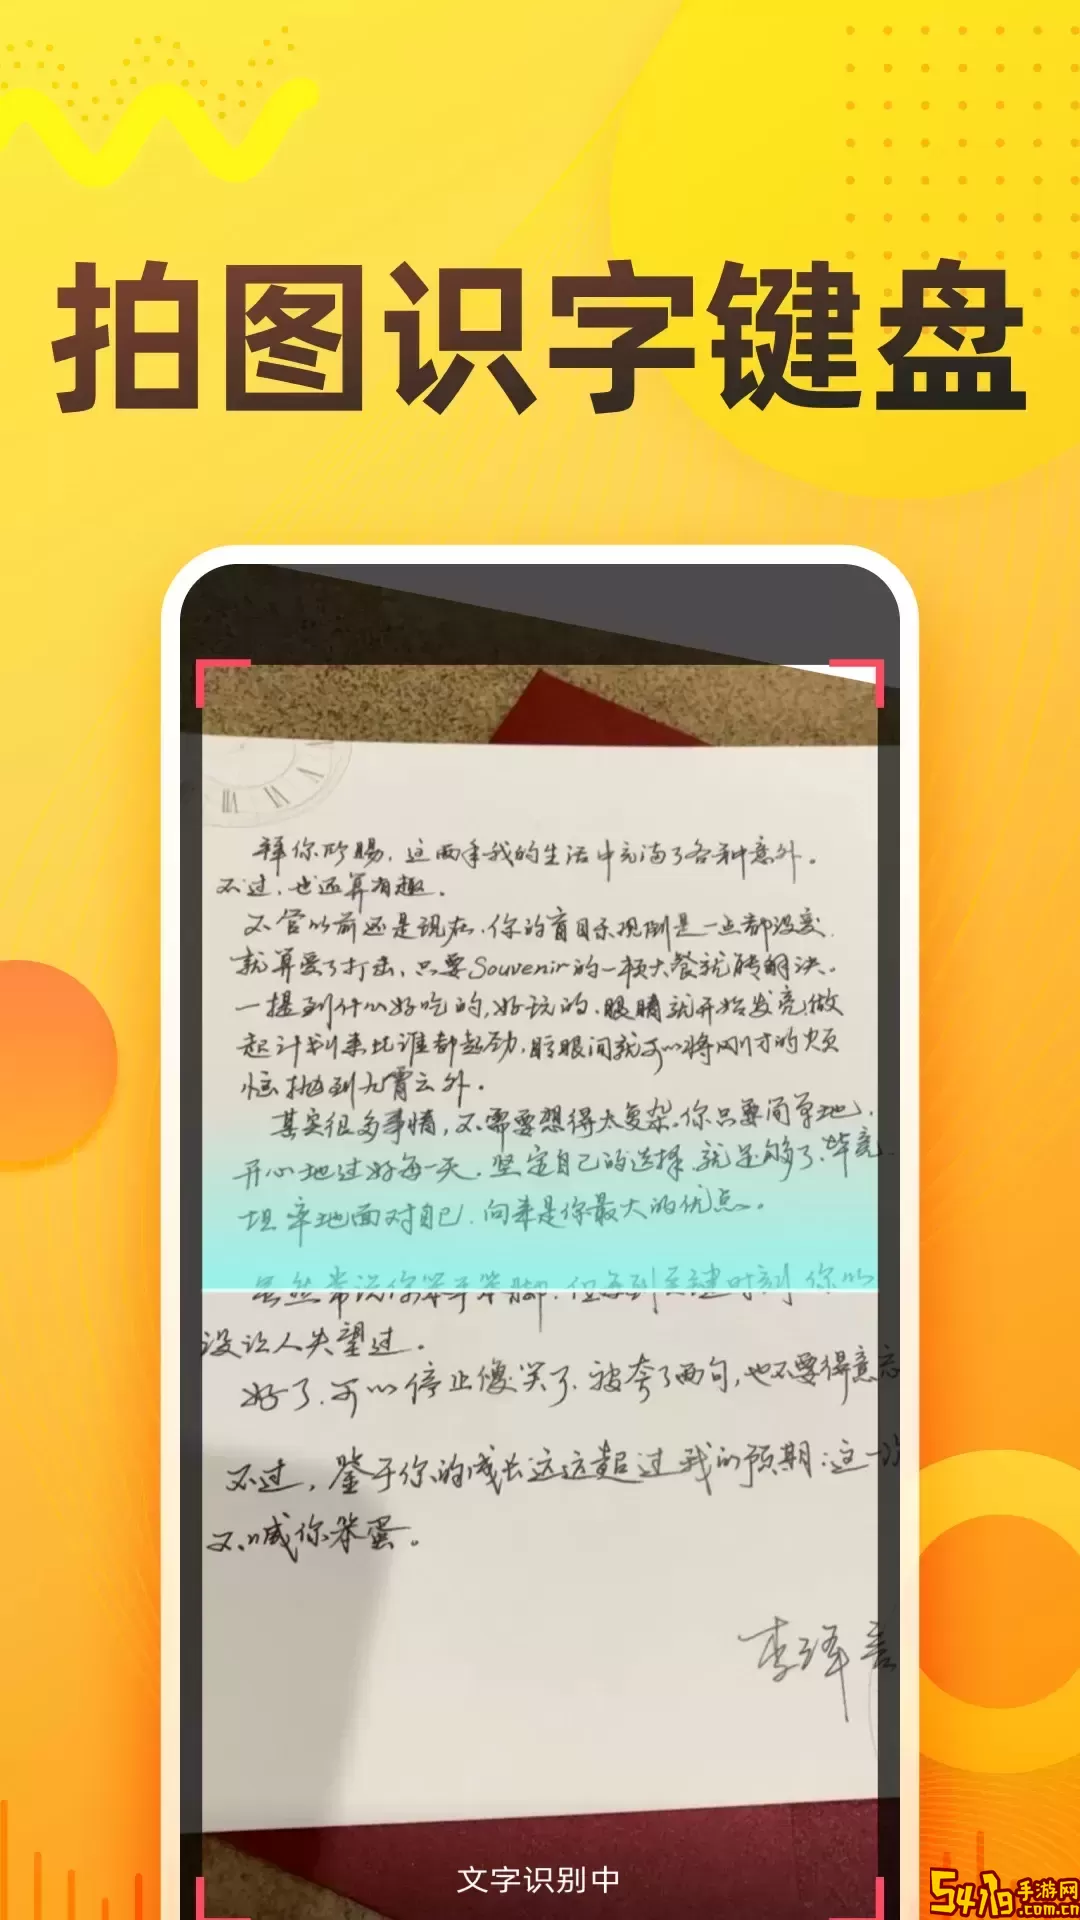 拍图识字键盘
拜你所赐，这两年我的生活中充满了各种意外。
不过，也还算有趣。
不管以前还是现在，你的盲目乐观倒是一点都没变，
就算受了打击，只要Souvenir的一顿大餐就能解决。
一提到什么好吃的，好玩的，眼睛就开始发亮，做
起计划来比谁都起劲，眨眼间就可以将刚才的烦
恼抛到九霄云外。
其实很多事情，不需要想得太复杂，你只要简单地，
开心地过好每一天，坚定自己的选择，就足够了，毕竟
坦率地面对自己，向来是你最大的优点。
虽然常说你笨手笨脚，但每到关键时刻，你从
没让人失望过。
好了，可以停止傻笑了，被夸了两句，也不要得意忘
不过，鉴于你的成长远远超过我的预期，这一次
不喊你笨蛋。
李泽言
文字识别中
5419手游网
.com.cn